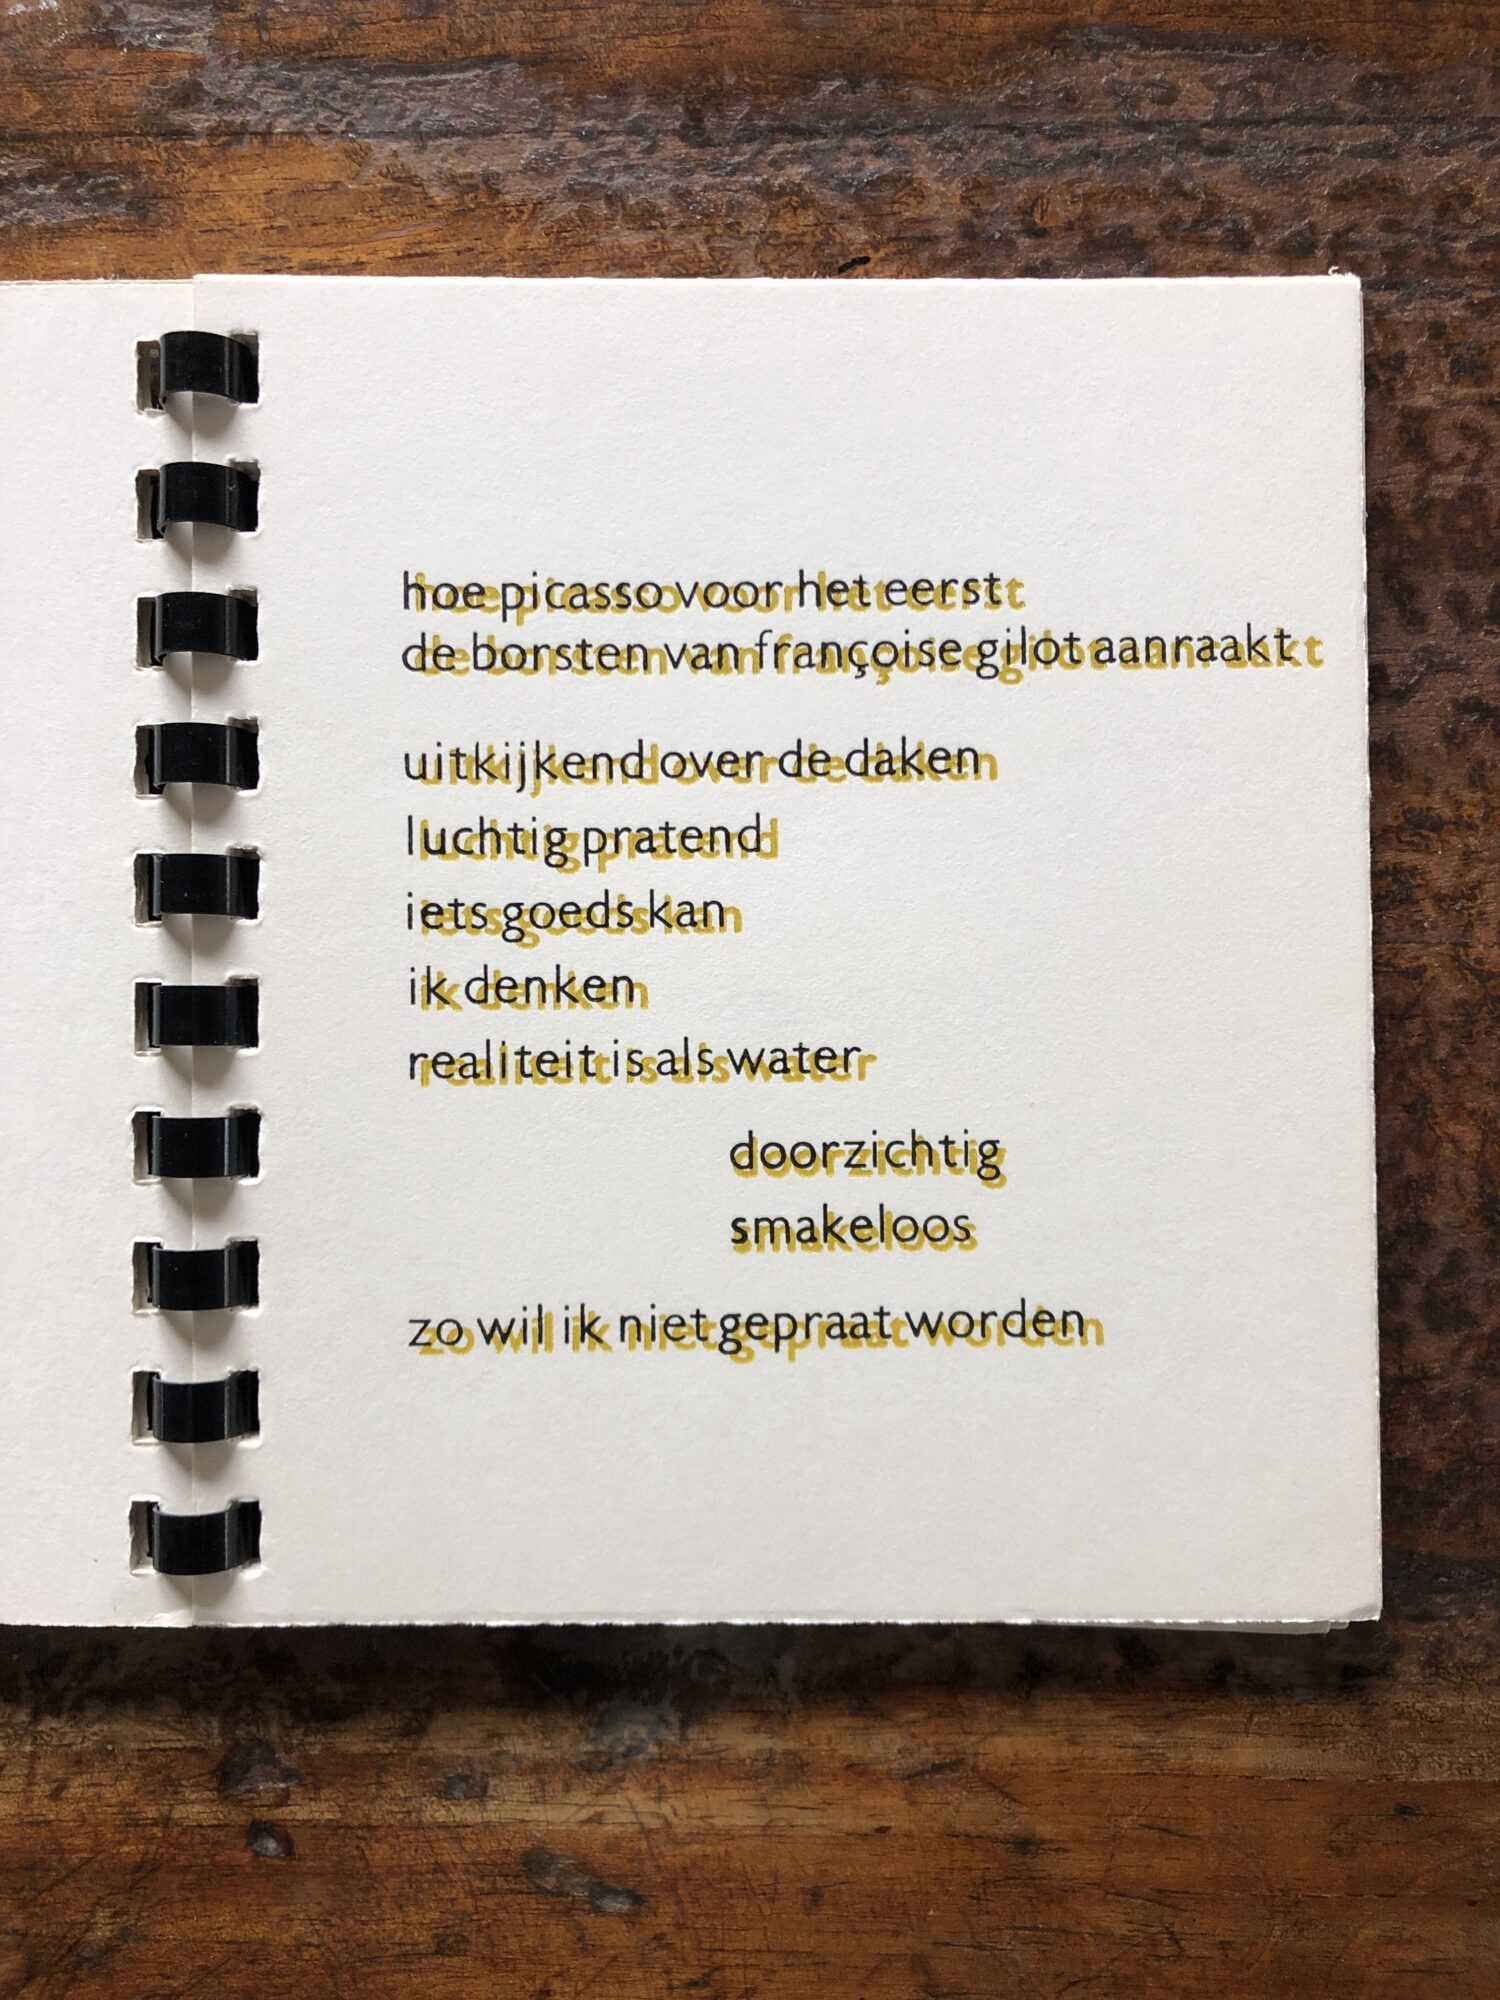 hoe picasso voor het eerst
de borsten van françoise gilot aanraakt
uitkijkend over de daken
luchtig pratend
iets goeds kan
ik denken
realiteit is als water
doorzichtig
smakeloos
zo wil ik niet gepraat worden